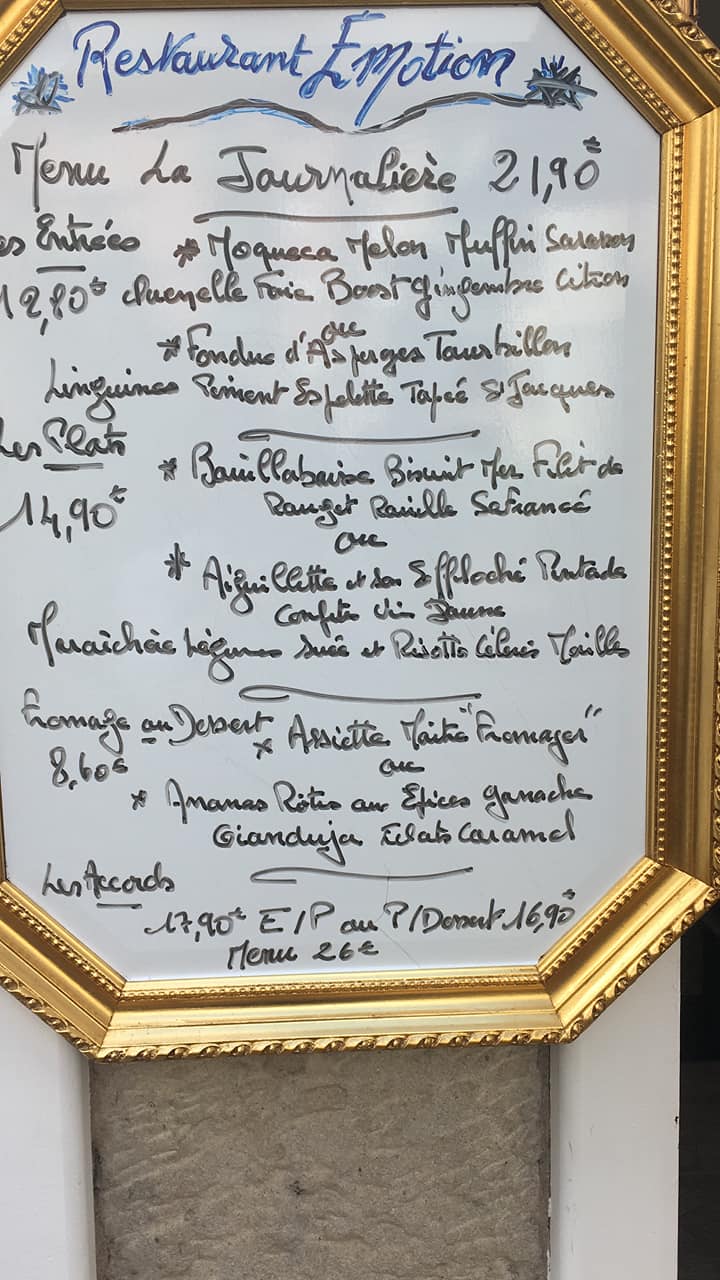 Restaurant Émotion
Menu La Journalière 21,90€
es Entrées * Moqueca Melon Muffin Sarrasin
12,80€ Quenelle Foie Boost Gingembre Citron
ou
* Fondue d'Asperges Tourbillon
Linguines Piment Espelette Tapée St Jacques
Les Plats * Bouillabaisse Biscuit Mer Filet de
14,90€ Rouget Rouille Safrancé
ou
* Aiguillette et son Effiloché Pintade
Confite Vin Jaune
Maraîchée Légumes et Risotto Céleris Morilles
Fromage ou Dessert * Assiette Maître "Fromager"
8,60€ ou
* Ananas Rôtis aux Épices Ganache
Gianduja Eclats Caramel
Les Accords
17,90€ E/P ou P/Dessert 16,90€
Menu 26€